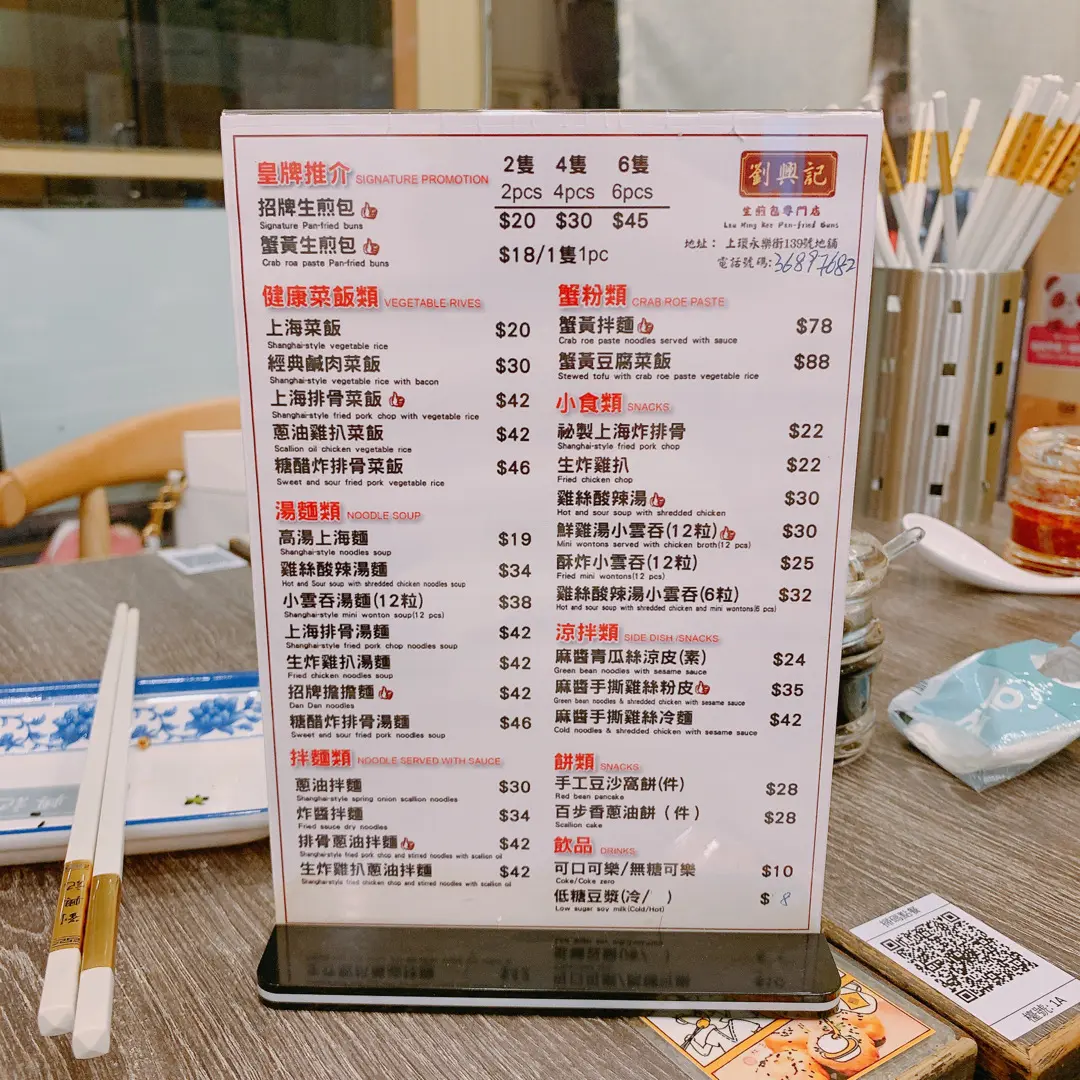 皇牌推介 SIGNATURE PROMOTION
2隻 4隻 6隻
2pcs 4pcs 6pcs
招牌生煎包 $20 $30 $45
Signature Pan-fried buns
蟹黃生煎包 $18/1隻1pc
Crab roa paste Pan-fried buns
劉興記
生煎包專門店
Lau Hing Kee Pan-fried Buns
地址: 上環永樂街139號地舖
電話號碼:36897682
健康菜飯類 VEGETABLE RIVES
上海菜飯 $20
Shanghai-style vegetable rice
經典鹹肉菜飯 $30
Shanghai-style vegetable rice with bacon
上海排骨菜飯 $42
Shanghai-style fried pork chop with vegetable rice
蔥油雞扒菜飯 $42
Scallion oil chicken vegetable rice
糖醋炸排骨菜飯 $46
Sweet and sour fried pork vegetable rice
湯麵類 NOODLE SOUP
高湯上海麵 $19
Shanghai-style noodles soup
雞絲酸辣湯麵 $34
Hot and Sour soup with shredded chicken noodles soup
小雲吞湯麵(12粒) $38
Shanghai-style mini wonton soup(12 pcs)
上海排骨湯麵 $42
Shanghai-style fried pork chop noodles soup
生炸雞扒湯麵 $42
Fried chicken noodles soup
招牌擔擔麵 $42
Dan Dan noodles
糖醋炸排骨湯麵 $46
Sweet and sour fried pork noodles soup
拌麵類 NOODLE SERVED WITH SAUCE
蔥油拌麵 $30
Shanghai-style spring onion scallion noodles
炸醬拌麵 $34
Fried sauce dry noodles
排骨蔥油拌麵 $42
Shanghai-style fried pork chop and stirred noodles with scallion oil
生炸雞扒蔥油拌麵 $42
Shanghai-style fried chicken chop and stirred noodles with scallion oil
蟹粉類 CRAB ROE PASTE
蟹黃拌麵 $78
Crab roe paste noodles served with sauce
蟹黃豆腐菜飯 $88
Stewed tofu with crab roe paste vegetable rice
小食類 SNACKS
祕製上海炸排骨 $22
Shanghai-style fried pork chop
生炸雞扒 $22
Fried chicken chop
雞絲酸辣湯 $30
Hot and sour soup with shredded chicken
鮮雞湯小雲吞(12粒) $30
Mini wontons served with chicken broth(12 pcs)
酥炸小雲吞(12粒) $25
Fried mini wontons(12 pcs)
雞絲酸辣湯小雲吞(6粒) $32
Hot and sour soup with shredded chicken and mini wontons(6 pcs)
涼拌類 SIDE DISH /SNACKS
麻醬青瓜絲涼皮(素) $24
Green bean noodles with sesame sauce
麻醬手撕雞絲粉皮 $35
Green bean noodles & shredded chicken with sesame sauce
麻醬手撕雞絲冷麵 $42
Cold noodles & shredded chicken with sesame sauce
餅類 SNACKS
手工豆沙窩餅(件) $28
Red bean pancake
百步香蔥油餅(件) $28
Scallion cake
飲品 DRINKS
可口可樂/無糖可樂 $10
Coke/Coke zero
低糖豆漿(冷/ ) $ 8
Low sugar soy milk(Cold/Hot)
掃碼點餐
檯號:1A